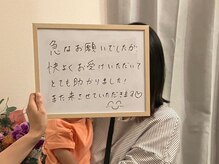 急なお願いでしたが
快よくお受けいただいて
とても助かりました!
また来させていただきます♡